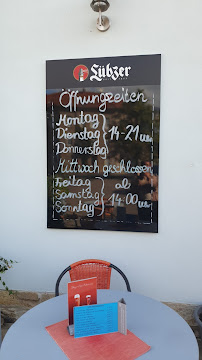 Lübzer
Öffnungszeiten
Montag
Dienstag 14-21 Uhr
Donnerstag
Mittwoch geschlossen
Freitag ab
Samstag 14:00 Uhr
Sonntag